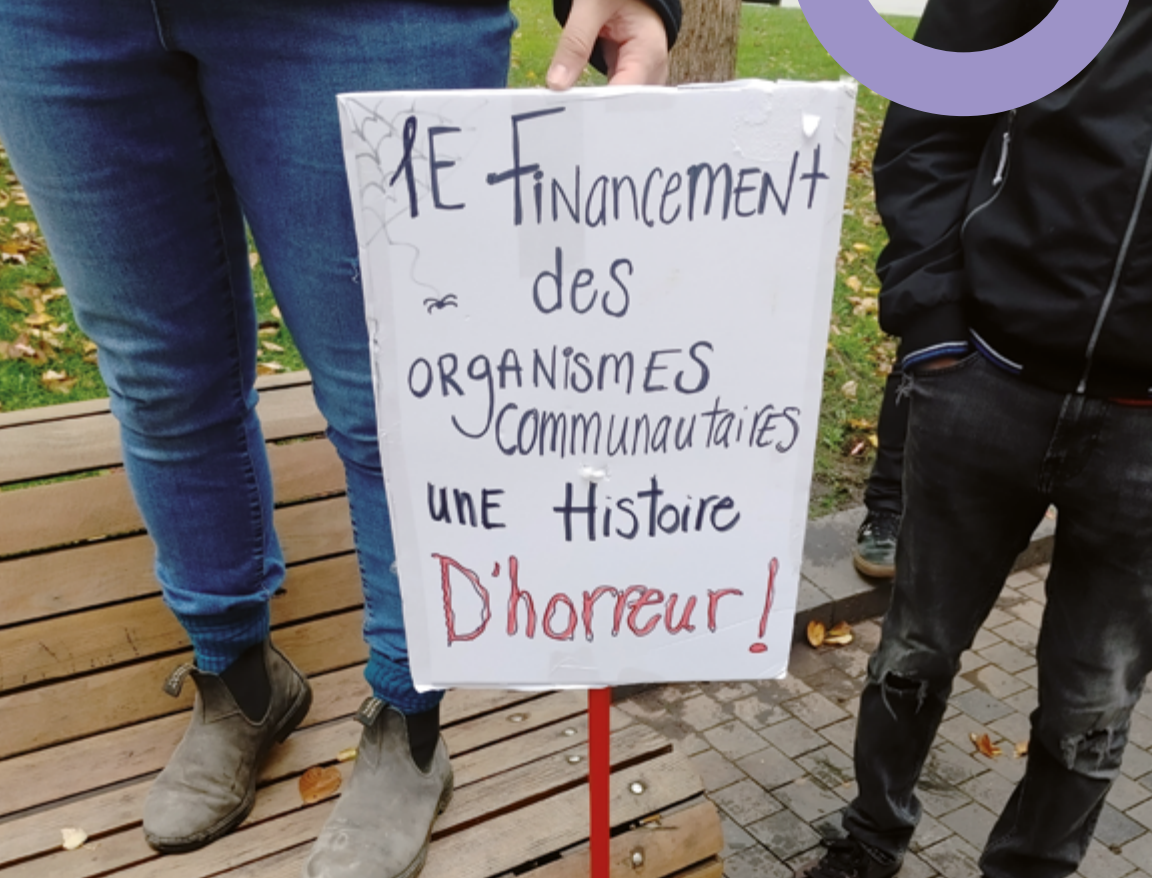 lE FiNancemENt
des
ORgANiSMES
communautairES
unE Histoire
D'horreur!